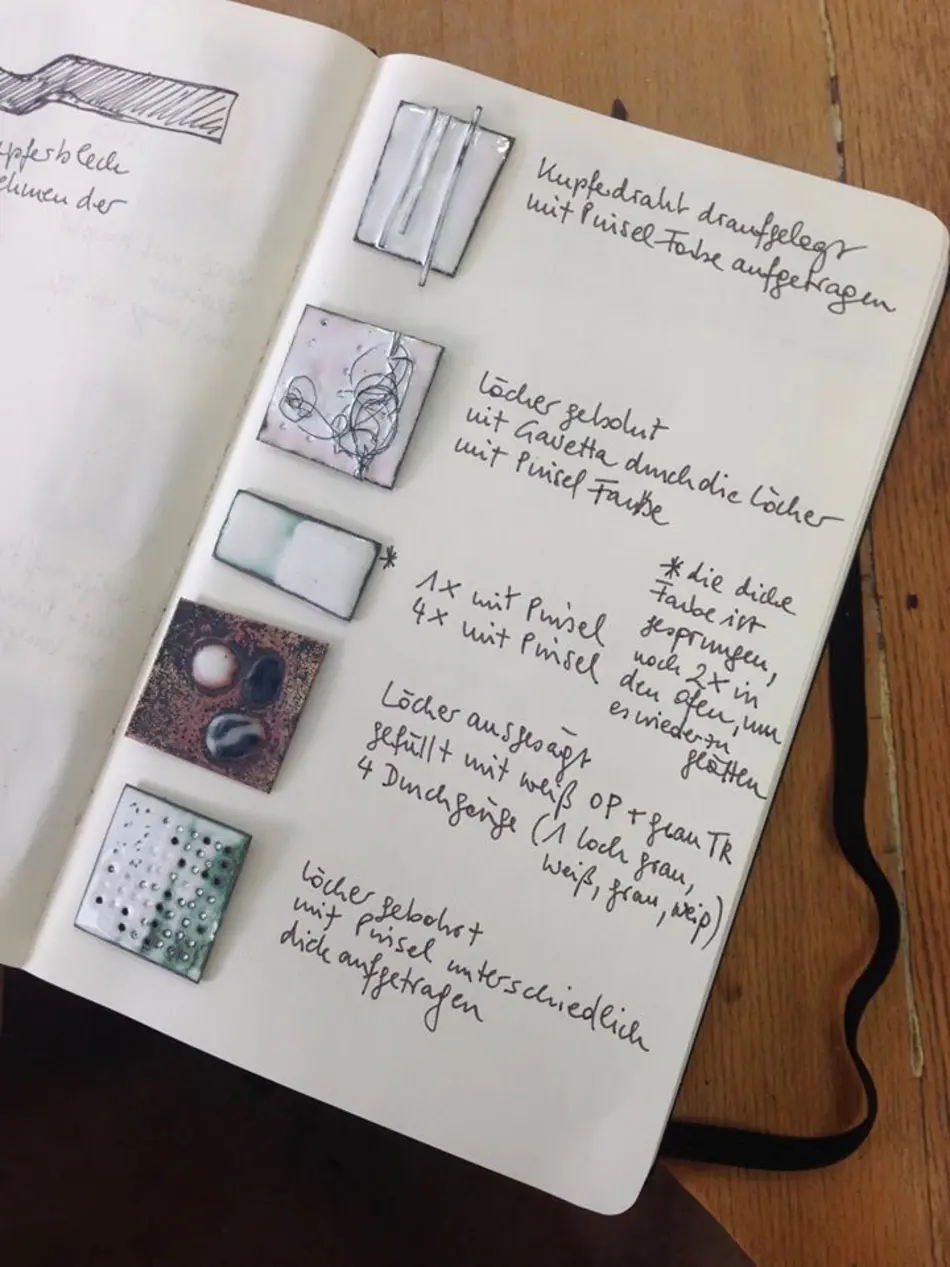 pferblech
ehmen der
Kupferdraht draufgelegt
mit Pinsel Farbe aufgetragen
Löcher gebohrt
mit Gavetta durch die Löcher
mit Pinsel Farbe
*
1x mit Pinsel
4x mit Pinsel
* die dicke
Farbe ist
gesprungen,
noch 2x in
den Ofen, um
es wieder zu
glätten
Löcher ausgesägt
gefüllt mit weiß OP + grau TR
4 Durchgänge (1 Loch grau,
weiß, grau, weiß)
Löcher gebohrt
mit Pinsel unterschiedlich
dick aufgetragen